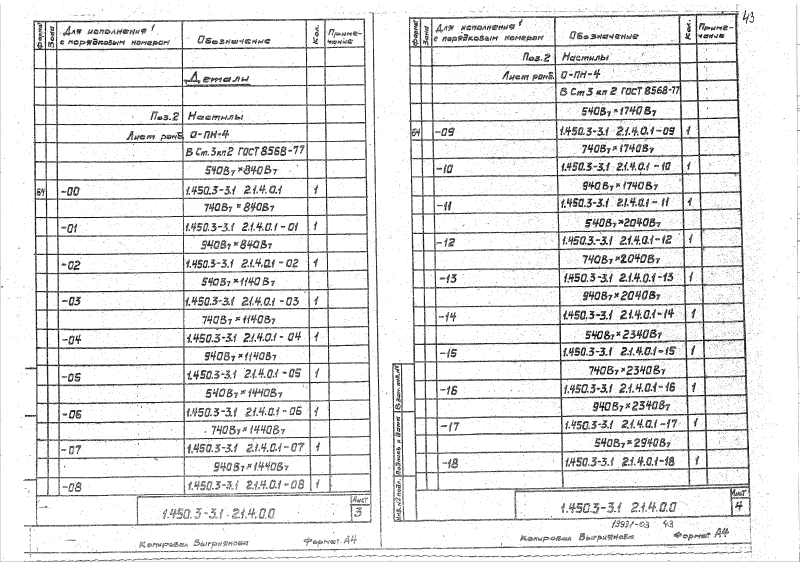 43
Формат
Зона
Для исполнения ¹
с порядковым номером
Обозначение
Кол.
Приме-
чание
Детали
Поз.2 Настилы
Лист ромб. О-ПН-4
В Ст.3кп2 ГОСТ 8568-77
540В7×840В7
БЧ -00 1.450.3-3.1 2.1.4.0.1 1
740В7×840В7
-01 1.450.3-3.1 2.1.4.0.1-01 1
940В7×840В7
-02 1.450.3-3.1 2.1.4.0.1-02 1
540В7×1140В7
-03 1.450.3-3.1 2.1.4.0.1-03 1
740В7×1140В7
-04 1.450.3-3.1 2.1.4.0.1-04 1
940В7×1140В7
-05 1.450.3-3.1 2.1.4.0.1-05 1
540В7×1440В7
-06 1.450.3-3.1 2.1.4.0.1-06 1
740В7×1440В7
-07 1.450.3-3.1 2.1.4.0.1-07 1
940В7×1440В7
-08 1.450.3-3.1 2.1.4.0.1-08 1
1.450.3-3.1 2.1.4.0.0
Лист
3
Копировал Выгриянова Формат А4
Формат
Зона
Для исполнения ¹
с порядковым номером
Обозначение
Кол.
Приме-
чание
Поз.2 Настилы
Лист ромб. О-ПН-4
В Ст3 кп 2 ГОСТ 8568-77
540В7×1740В7
БЧ -09 1.450.3-3.1 2.1.4.0.1-09 1
740В7×1740В7
-10 1.450.3-3.1 2.1.4.0.1-10 1
940В7×1740В7
-11 1.450.3-3.1 2.1.4.0.1-11 1
540В7×2040В7
-12 1.450.3-3.1 2.1.4.0.1-12 1
740В7×2040В7
-13 1.450.3-3.1 2.1.4.0.1-13 1
940В7×2040В7
-14 1.450.3-3.1 2.1.4.0.1-14 1
540В7×2340В7
-15 1.450.3-3.1 2.1.4.0.1-15 1
740В7×2340В7
-16 1.450.3-3.1 2.1.4.0.1-16 1
940В7×2340В7
-17 1.450.3-3.1 2.1.4.0.1-17 1
540В7×2940В7
-18 1.450.3-3.1 2.1.4.0.1-18 1
Инв.№ подл. Подпись и дата Взам.инв.№
1.450.3-3.1 2.1.4.0.0
Лист
4
19931-03 43
Копировал Выгриянова Формат А4